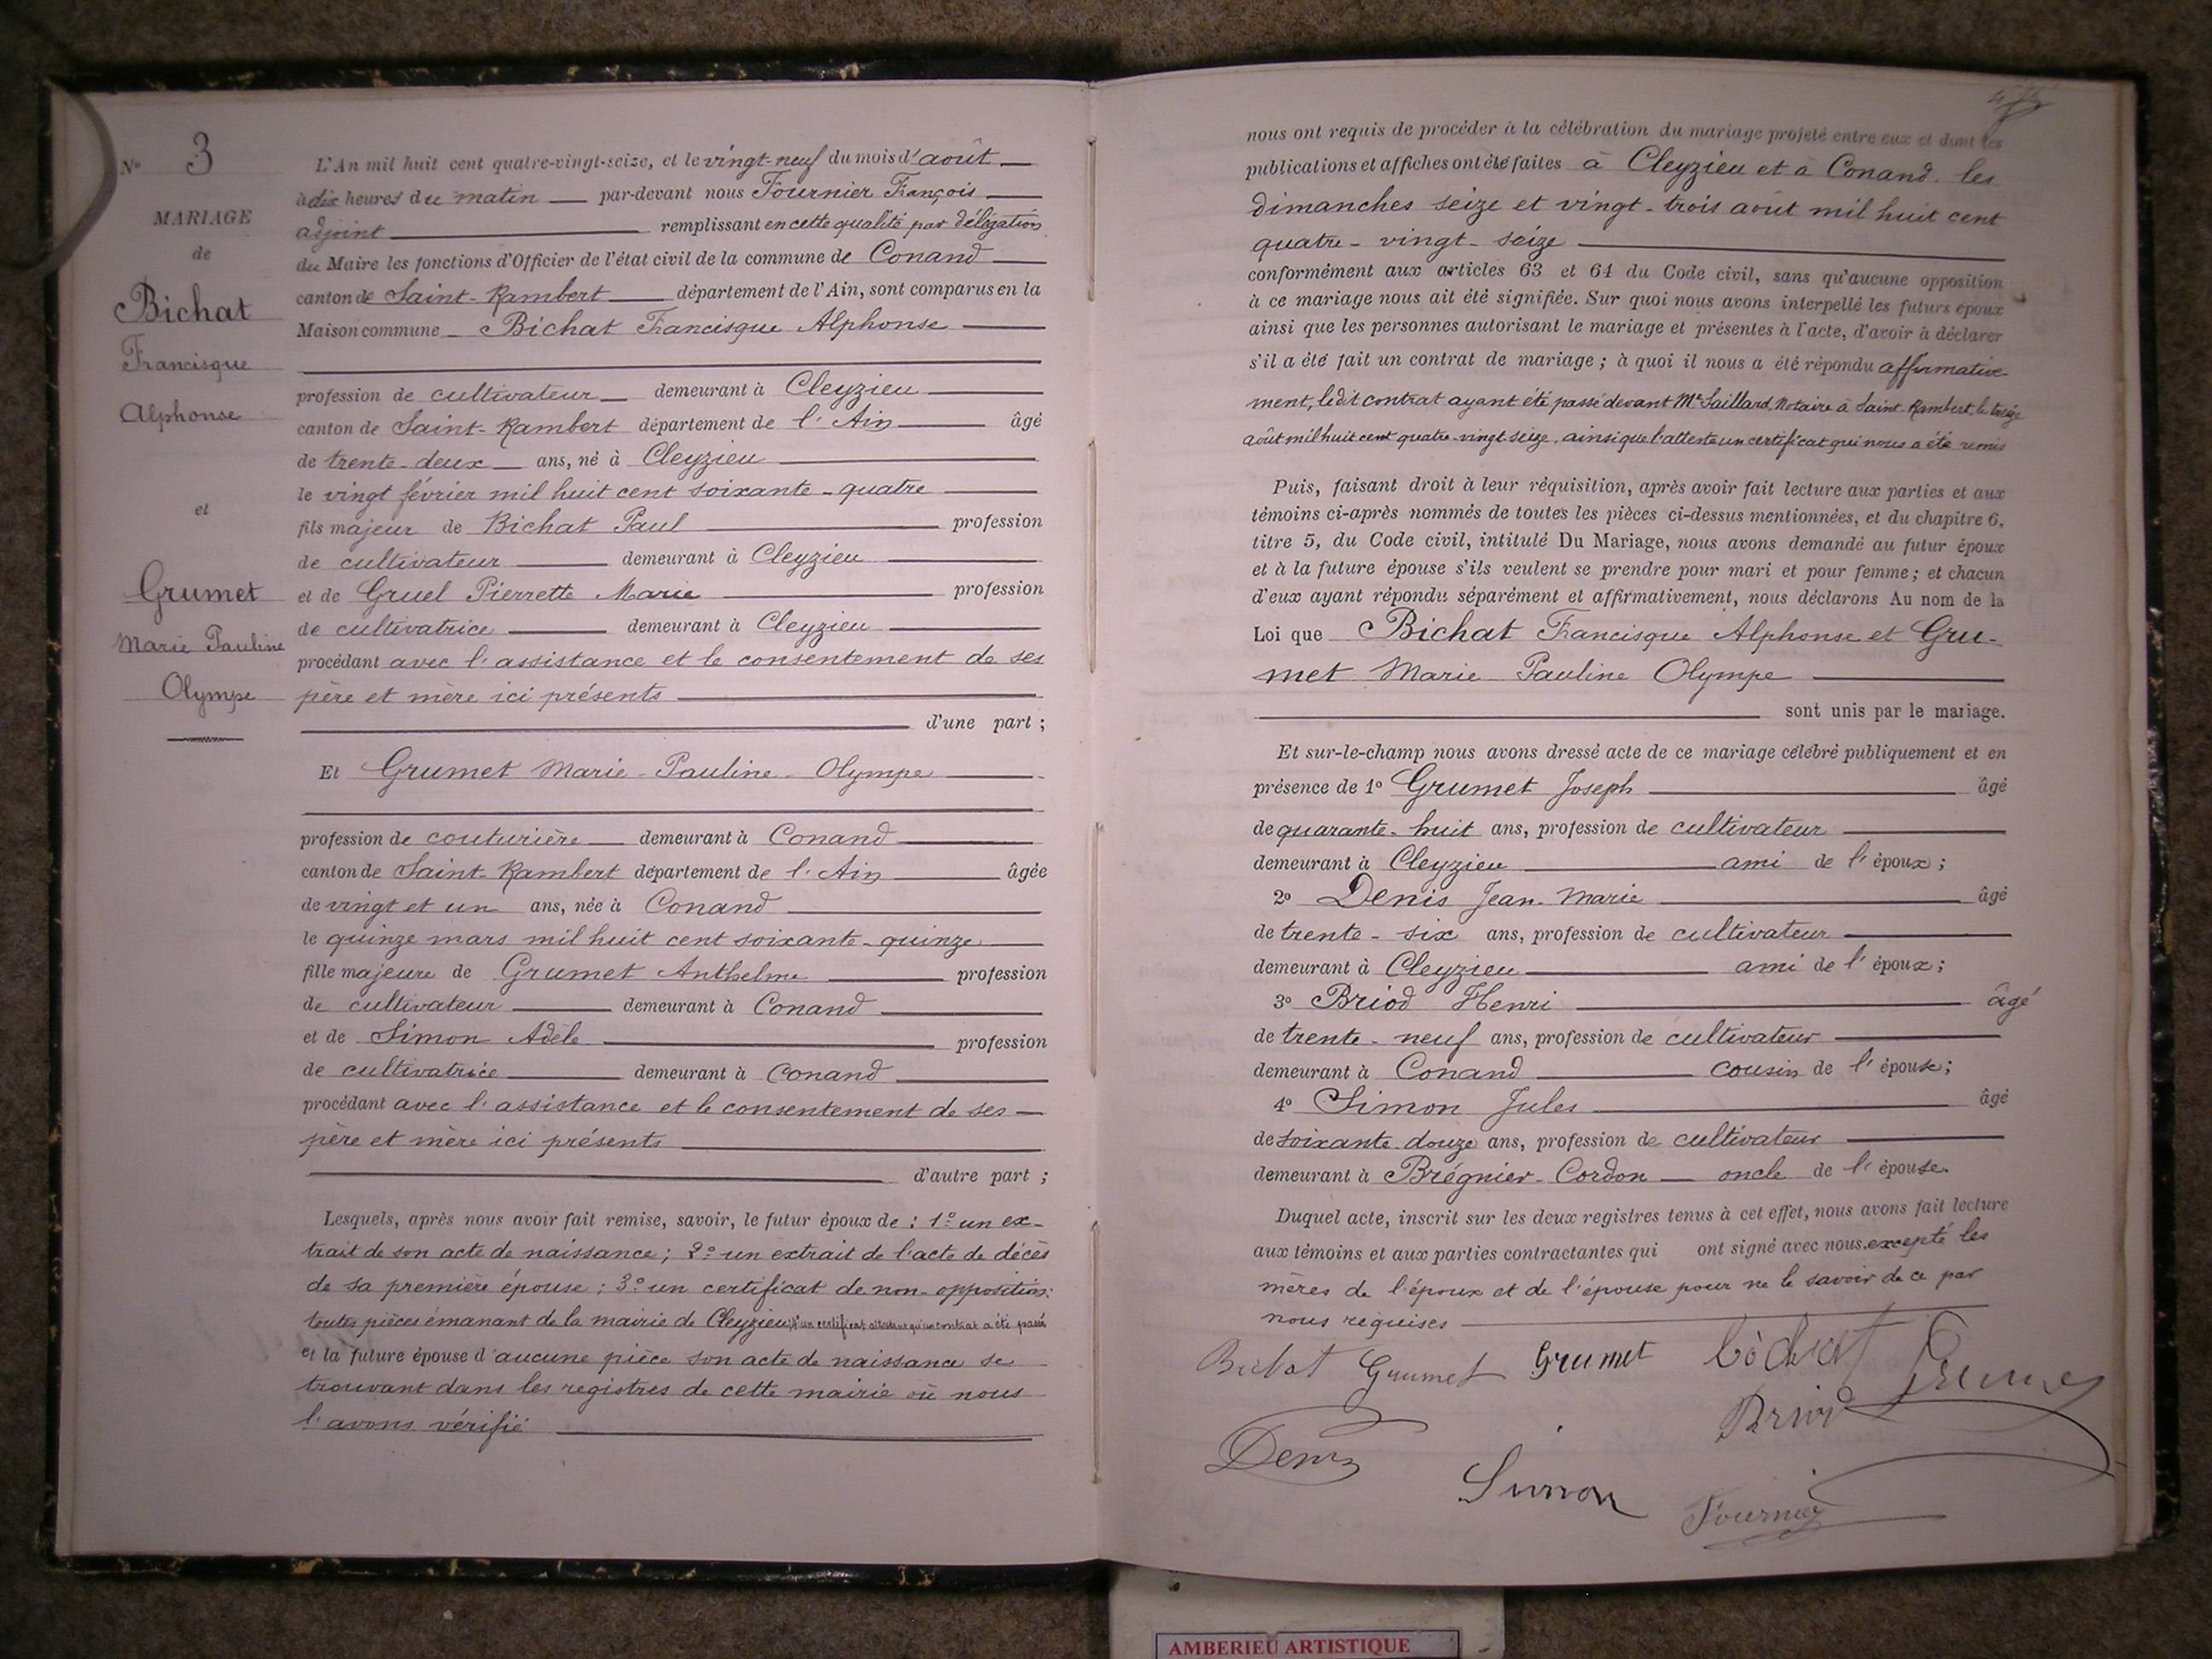 N° 3
MARIAGE
de
Bichat
Francisque
Alphonse
et
Grumet
Marie Pauline
Olympe
L'An mil huit cent quatre-vingt-seize, et le vingt-neuf du mois d'août
à dix heures du matin par-devant nous Fournier François
adjoint remplissant en cette qualité par délégation
du Maire les fonctions d'Officier de l'état civil de la commune de Conand
canton de Saint-Rambert département de l'Ain, sont comparus en la
Maison commune Bichat Francisque Alphonse
profession de cultivateur demeurant à Cleyzieu
canton de Saint-Rambert département de l'Ain âgé
de trente-deux ans, né à Cleyzieu
le vingt février mil huit cent soixante-quatre
fils majeur de Bichat Paul profession
de cultivateur demeurant à Cleyzieu
et de Gruel Pierrette Marie profession
de cultivatrice demeurant à Cleyzieu
procédant avec l'assistance et le consentement de ses
père et mère ici présents
d'une part ;
Et Grumet Marie-Pauline-Olympe
profession de couturière demeurant à Conand
canton de Saint-Rambert département de l'Ain âgée
de vingt et un ans, née à Conand
le quinze mars mil huit cent soixante-quinze
fille majeure de Grumet Anthelme profession
de cultivateur demeurant à Conand
et de Simon Adèle profession
de cultivatrice demeurant à Conand
procédant avec l'assistance et le consentement de ses
père et mère ici présents
d'autre part ;
Lesquels, après nous avoir fait remise, savoir, le futur époux de : 1° un ex-
trait de son acte de naissance ; 2° un extrait de l'acte de décès
de sa première épouse ; 3° un certificat de non-opposition ;
toutes pièces émanant de la mairie de Cleyzieu ; 4° un certificat attestant qu'un contrat a été passé
et la future épouse d'aucune pièce son acte de naissance se
trouvant dans les registres de cette mairie où nous
l'avons vérifié
nous ont requis de procéder à la célébration du mariage projeté entre eux et dont les
publications et affiches ont été faites à Cleyzieu et à Conand les
dimanches seize et vingt-trois août mil huit cent
quatre-vingt-seize
conformément aux articles 63 et 64 du Code civil, sans qu'aucune opposition
à ce mariage nous ait été signifiée. Sur quoi nous avons interpellé les futurs époux
ainsi que les personnes autorisant le mariage et présentes à l'acte, d'avoir à déclarer
s'il a été fait un contrat de mariage ; à quoi il nous a été répondu affirmative-
ment, le dit contrat ayant été passé devant Me Saillard, Notaire à Saint-Rambert, le treize
août mil huit cent quatre-vingt-seize, ainsi que l'atteste un certificat qui nous a été remis
Puis, faisant droit à leur réquisition, après avoir fait lecture aux parties et aux
témoins ci-après nommés de toutes les pièces ci-dessus mentionnées, et du chapitre 6,
titre 5, du Code civil, intitulé Du Mariage, nous avons demandé au futur époux
et à la future épouse s'ils veulent se prendre pour mari et pour femme ; et chacun
d'eux ayant répondu séparément et affirmativement, nous déclarons Au nom de la
Loi que Bichat Francisque Alphonse et Gru-
met Marie Pauline Olympe
sont unis par le mariage.
Et sur-le-champ nous avons dressé acte de ce mariage célébré publiquement et en
présence de 1° Grumet Joseph âgé
de quarante-huit ans, profession de cultivateur
demeurant à Cleyzieu ami de l'époux ;
2° Denis Jean-Marie âgé
de trente-six ans, profession de cultivateur
demeurant à Cleyzieu ami de l'époux ;
3° Briod Henri âgé
de trente-neuf ans, profession de cultivateur
demeurant à Conand cousin de l'épouse ;
4° Simon Jules âgé
de soixante-douze ans, profession de cultivateur
demeurant à Brégnier-Cordon oncle de l'épouse
Duquel acte, inscrit sur les deux registres tenus à cet effet, nous avons fait lecture
aux témoins et aux parties contractantes qui ont signé avec nous excepté les
mères de l'époux et de l'épouse pour ne le savoir de ce par
nous requises
Bichat Grumet Grumet Bichat Grumet
Briod
Denis
Simon
Fournier
AMBERIEU ARTISTIQUE